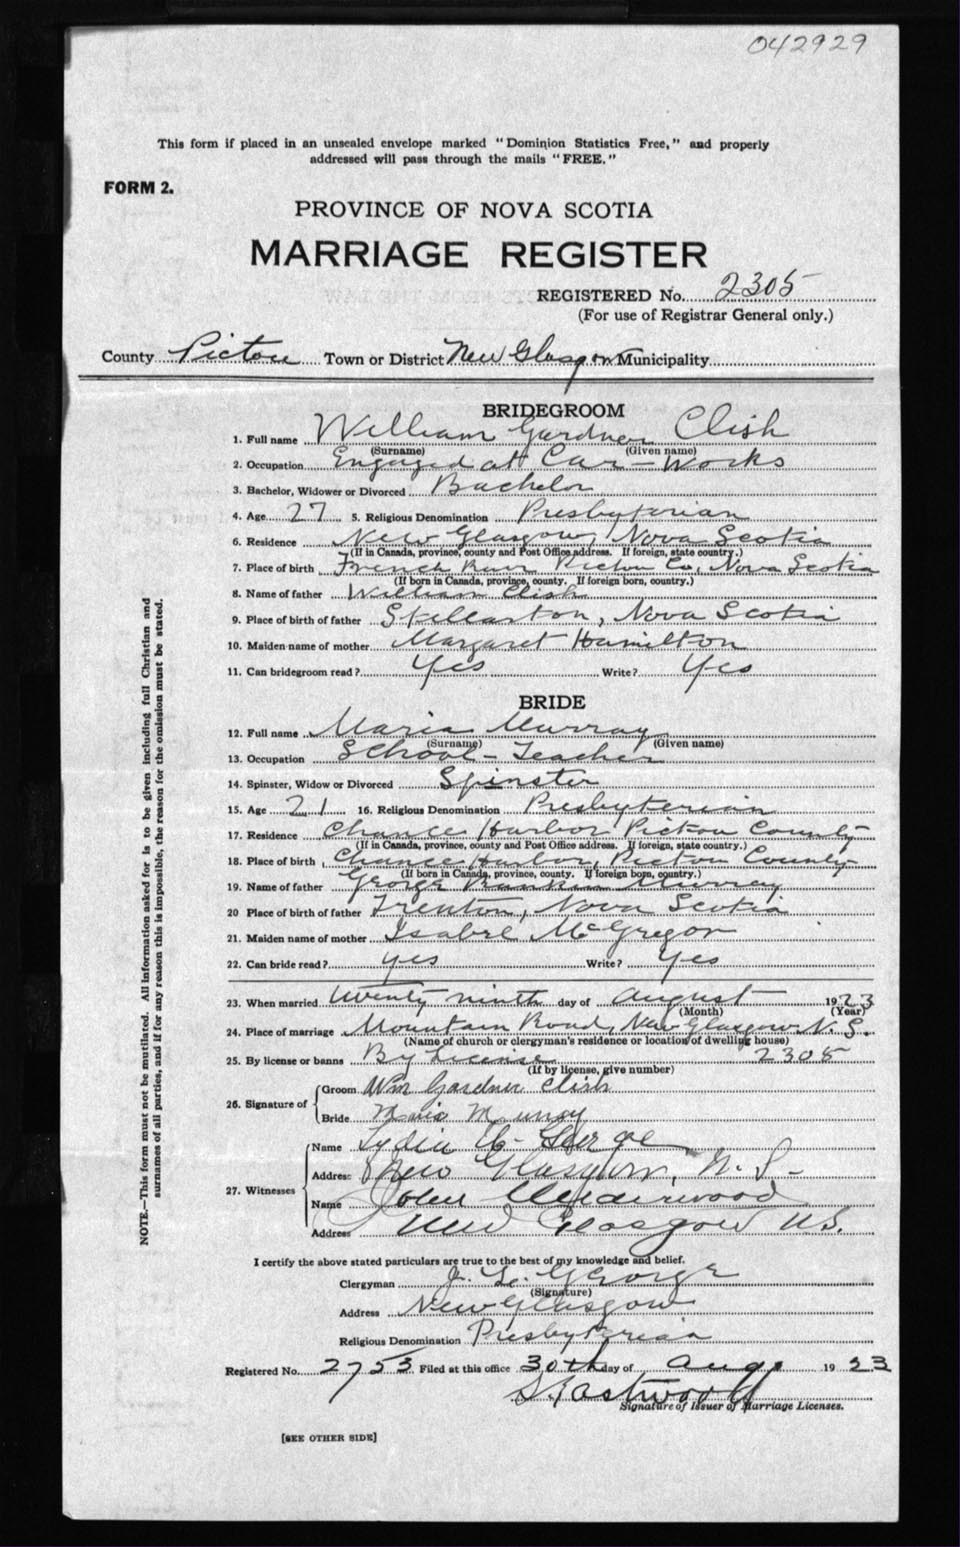 042929
This form if placed in an unsealed envelope marked "Dominion Statistics Free," and properly
addressed will pass through the mails "FREE."
FORM 2.
PROVINCE OF NOVA SCOTIA
MARRIAGE REGISTER
REGISTERED No. 2305
(For use of Registrar General only.)
County Pictou Town or District New Glasgow Municipality
BRIDEGROOM
1. Full name William Gardner Clish
(Surname) (Given name)
2. Occupation Engaged at Car-Works
3. Bachelor, Widower or Divorced Bachelor
4. Age 27 5. Religious Denomination Presbyterian
6. Residence New Glasgow, Nova Scotia
(If in Canada, province, county and Post Office address. If foreign, state country.)
7. Place of birth French River Pictou Co, Nova Scotia
(If born in Canada, province, county. If foreign born, country.)
8. Name of father William Clish
9. Place of birth of father Stellarton, Nova Scotia
10. Maiden name of mother Margaret Hamilton
11. Can bridegroom read? Yes Write? Yes
BRIDE
12. Full name Maria Murray
(Surname) (Given name)
13. Occupation School-Teacher
14. Spinster, Widow or Divorced Spinster
15. Age 21 16. Religious Denomination Presbyterian
17. Residence Chance Harbor, Pictou County
(If in Canada, province, county and Post Office address. If foreign, state country.)
18. Place of birth Chance Harbor, Pictou County
(If born in Canada, province, county. If foreign born, country.)
19. Name of father George Murray
20 Place of birth of father Trenton, Nova Scotia
21. Maiden name of mother Isabel McGregor
22. Can bride read? yes Write? Yes
23. When married twenty ninth day of August 1923
(Month) (Year)
24. Place of marriage Mountain Road, New Glasgow N. S.
(Name of church or clergyman's residence or location of dwelling house)
25. By license or banns By License 2305
(If by license, give number)
26. Signature of
Groom Wm Gardner Clish
Bride Maria Murray
27. Witnesses
Name Lydia George
Address New Glasgow, N. S.
Name John Underwood
Address New Glasgow N.S.
I certify the above stated particulars are true to the best of my knowledge and belief.
Clergyman J. L. George
(Signature)
Address New Glasgow
Religious Denomination Presbyterian
Registered No. 2753 Filed at this office 30th day of Aug 1923
S. Eastwood
Signature of Issuer of Marriage Licenses.
[SEE OTHER SIDE]
NOTE.—This form must not be mutilated. All information asked for is to be given including full Christian and
surnames of all parties, and if for any reason this is impossible, the reason for the omission must be stated.